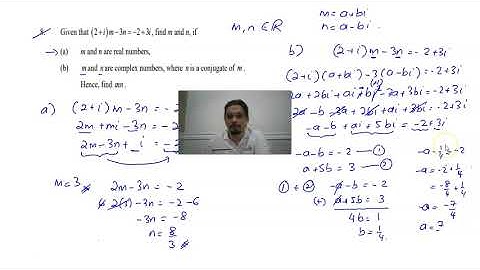 Given that (2+i)m-3n=-2+3i, find m and n, if
(a) m and n are real numbers,
(b) m and n are complex numbers, where n is a conjugate of m.
Hence, find mn.
m, n ∈ R
m = a+bi
n = a-bi
a) (2+i)m - 3n = -2
2m + mi - 3n = -2
2m-3n + i = -2
m=3
2m-3n = -2
2(3)-3n = -2
-3n = -2-6
-3n = -8
n = 8/3
b) (2+i)m-3n = -2+3i
(2+i)(a+bi)-3(a-bi) = -2+3i
2a+2bi+ai+bi²-3a+3bi = -2+3i
2a-b-3a+2bi+ai+3bi = -2+3i
-a-b+ai+5bi = -2+3i
-a-b = -2 ①
a+5b = 3 ②
①+② -a-b = -2
(+) a+5b = 3
4b = 1
b = 1/4
-a-1/4=-2
-a=-2+1/4
=-8/4+1/4
-a=-7/4
a=7